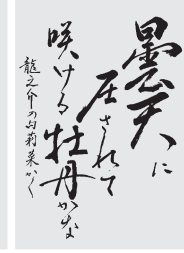 曇天に
圧されて
咲ける牡丹かな
龍之介の句莉菜かく